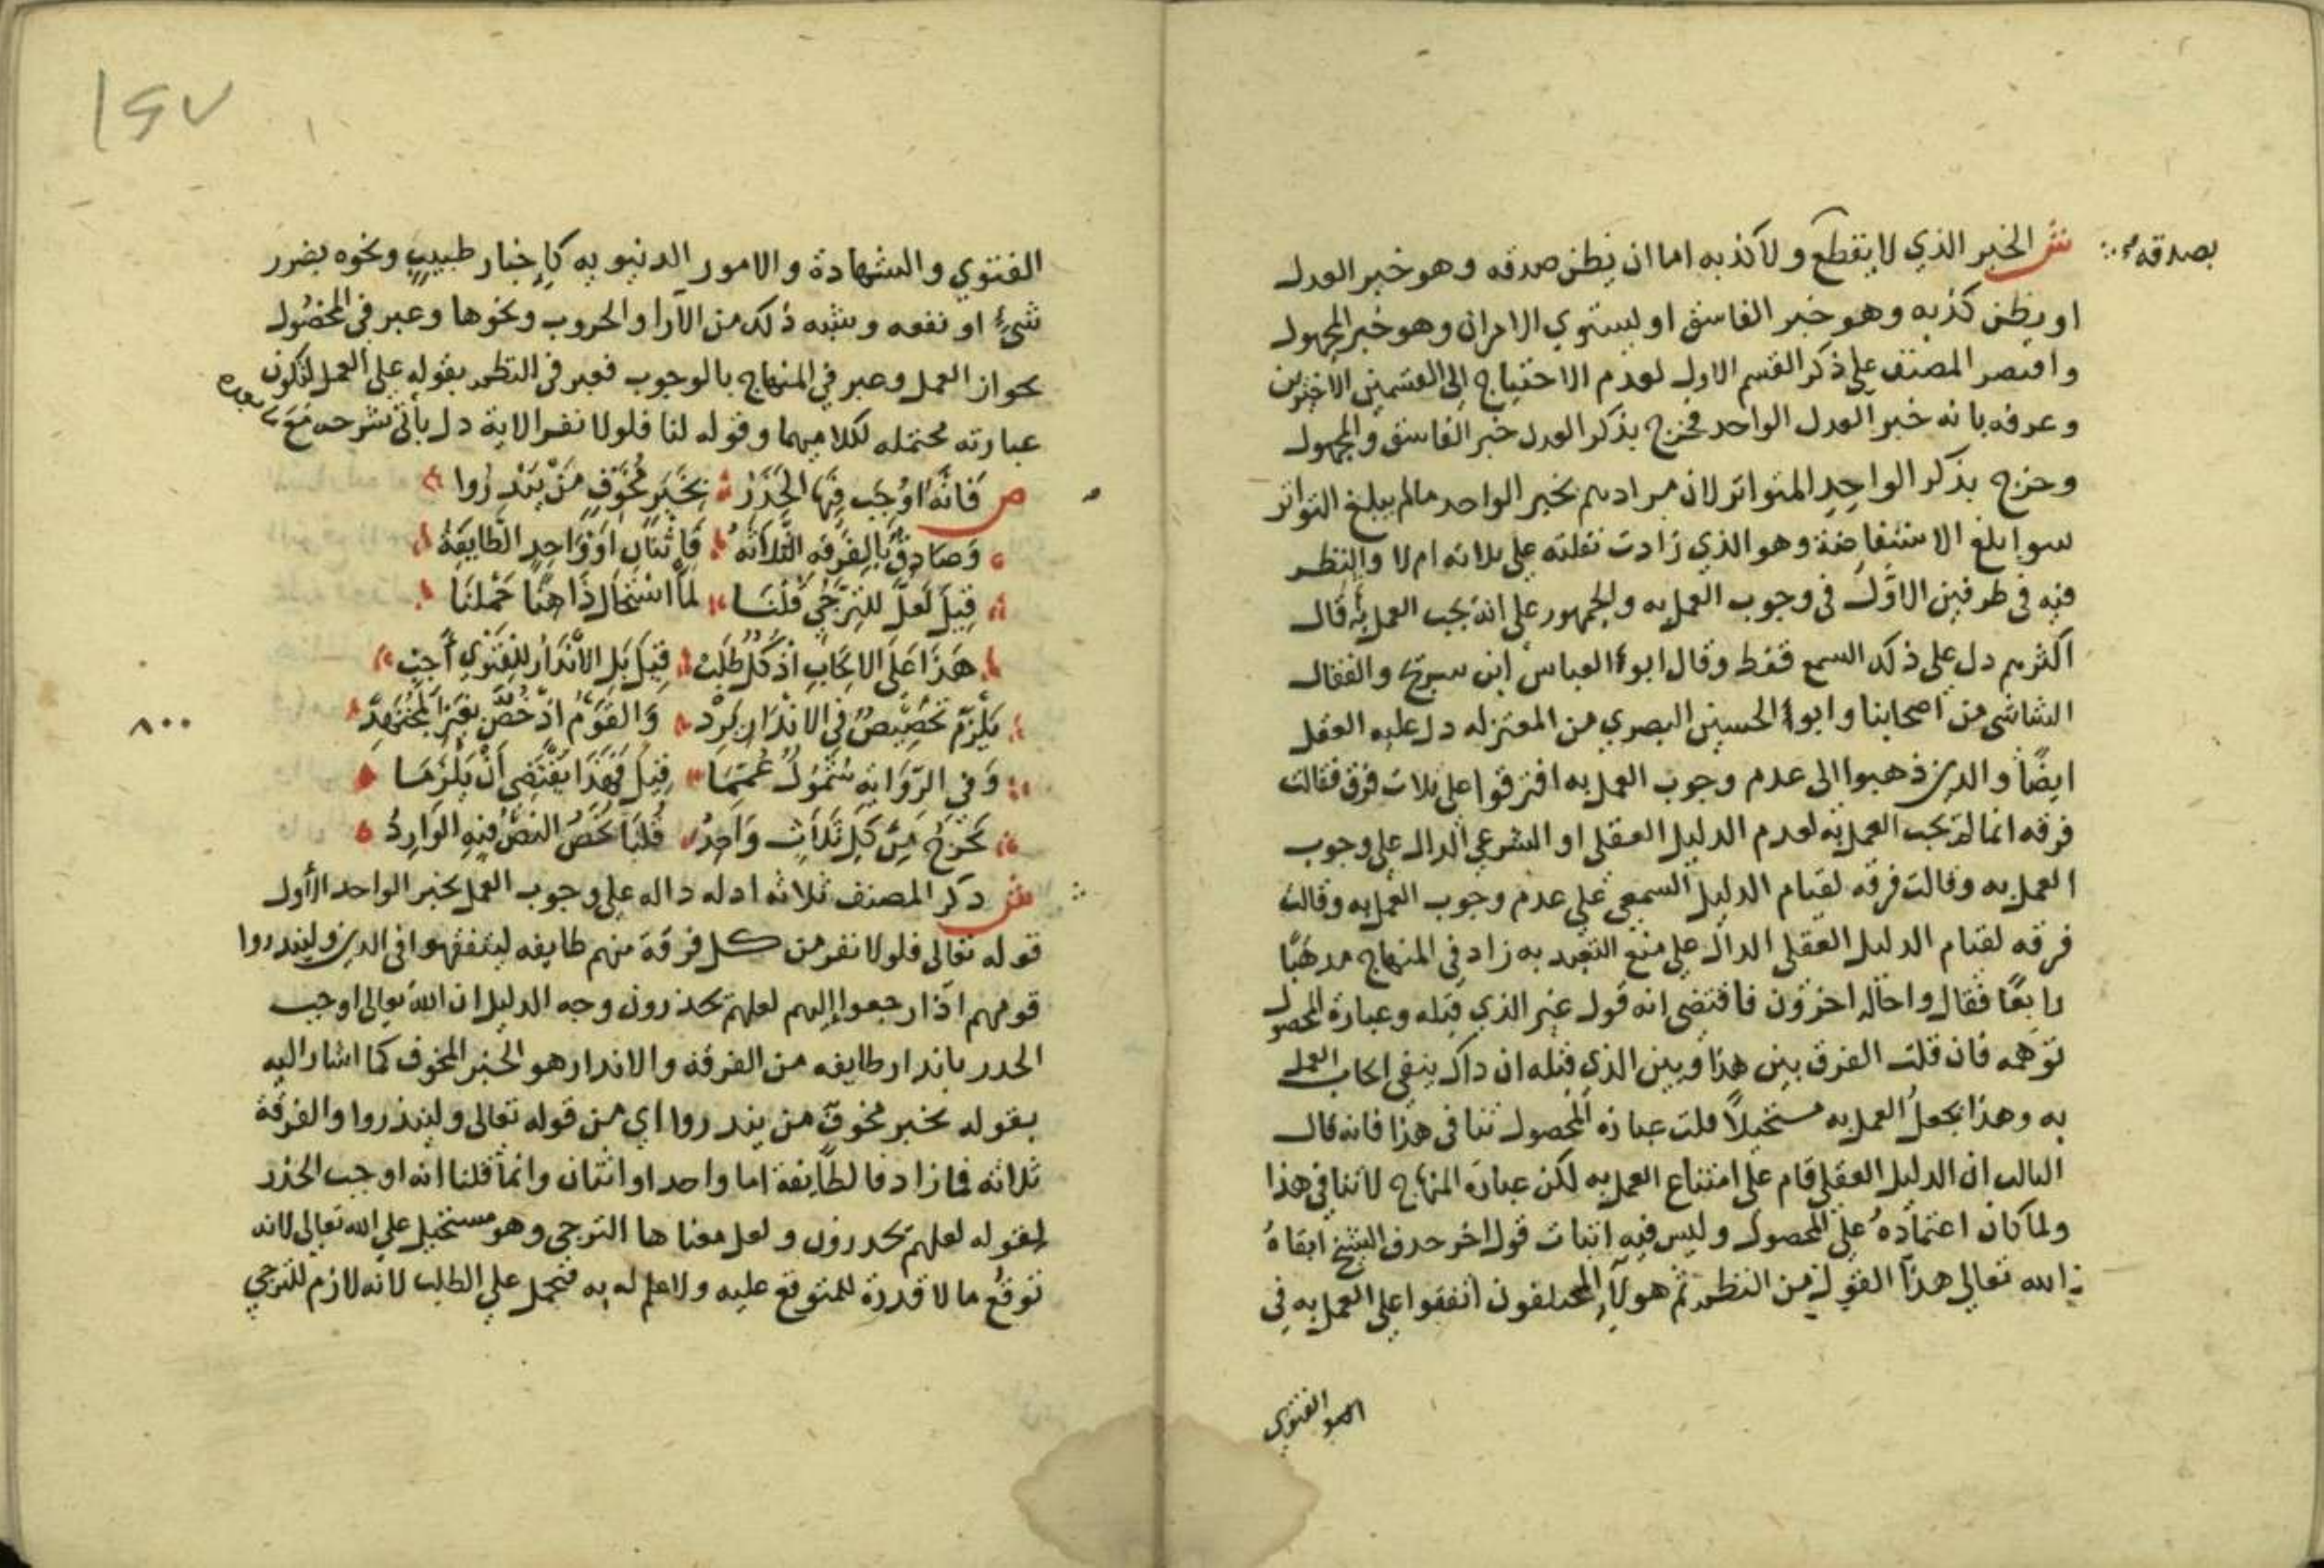 بصدقه
ش الخبر الذي لا يقطع ولا كذبه اما ان يظن صدقه وهو خبر العدل
او يظن كذبه وهو خبر الفاسق او يستوي الامران وهو خبر المجهول
واقتصر المصنف على ذكر القسم الاول لعدم الاحتياج الى القسمين الاخيرين
وعرفه بانه خبر العدل الواحد فخرج بذكر العدل خبر الفاسق والمجهول
وخرج بذكر الواحد المتواتر لان مرادهم بخبر الواحد مالم يبلغ التواتر
سوا بلغ الاستفاضة وهو الذي زادت نقلته على ثلاثه ام لا والنظر
فيه في طرفين الاول في وجوب العمل به والجمهور على انه يجب العمل به قال
اكثرهم دل على ذلك السمع فقط وقال ابو العباس ابن سريج والقفال
الشاشي من اصحابنا وابو الحسين البصري من المعتزله دل عليه العقل
ايضًا والذين ذهبوا الى عدم وجوب العمل به افترقوا على ثلاث فرق فقالت
فرقه انما لم يجب العمل به لعدم الدليل العقلي او الشرعي الدال على وجوب
العمل به وقالت فرقه لقيام الدليل السمعي على عدم وجوب العمل به وقالت
فرقه لقيام الدليل العقلي الدال على منع التعبد به زاد في المنهاج مذهبًا
رابعًا فقال واحاله اخرون فاقتضى انه قول غير الذي قبله وعبارة المحصول
توهمه فان قلت الفرق بين هذا وبين الذي قبله ان ذاك ينفي ايجاب العمل
به وهذا يجعل العمل به مستحيلاً قلت عبارة المحصول تنافي هذا فانه قال
الثالث ان الدليل العقلي قام على امتناع العمل به لكن عبارة المنهاج لا تنافي هذا
ولما كان اعتماده على المحصول وليس فيه اثبات قول اخر حذف الشيخ ابقاه
الله تعالى هذا القول من النظم ثم هولاء المخالفون اتفقوا على العمل به في
الفتوي
١٤٧
الفتوي والشهادة والامور الدنيويه كاخبار طبيب ونحوه بضرر
شيء او نفعه وشبه ذلك من الآرا والحروب ونحوها وعبر في المحصول
بجواز العمل وعبر في المنهاج بالوجوب فعبر في النظم بقوله على العمل لتكون
عبارته محتمله لكلاميهما وقوله لنا فلولا نفر الاية دل يأتي شرحه مع
ص فَانَّهُ اوْجَب فيهَا الحَذَرْ بخَبَرٍ مُخَوِّفٍ مَنْ يُنْذِرُوا
وَصَادِقٌ بالفِرْقَه الثَّلاثَهْ فَاثْنَانِ اَوْ وَاحِدٍ الطَّايِفَهْ
قِيلَ لَعلَّ للتَّرَجِّي قُلْنَا لَمَّا اسْتَحَالَ ذَا هُنَا حَمَلْنَا
هَذَا عَلَى الايجَابِ اذْ كُلٌّ طَلَبْ قِيلَ بَلِ الانْذَارُ للفَتْوَى أَجِبْ
يَلْزَمُ تَخْصِيصٌ في الانْذَارِ يَرِدْ وَالقَوْمُ اذْ خُصَّ بغَيْرِ المُجْتَهِدْ
٨٠٠
وَفي الرِّوَايَه شُمُولٌ عُمِّمَا قِيلَ فَهَذَا يَقْتَضِي أَنْ يَلْزَمَا
يَخْرُجُ مِنْ كُلِّ ثَلَاثٍ وَاحِدُ قُلْنَا يَخُصُّ النَّصُّ فيهِ الوَارِدُ
ش ذكر المصنف ثلاثه ادله داله على وجوب العمل بخبر الواحد الأول
قوله تعالى فلولا نفر من كل فرقة منهم طايفه ليتفقهوا في الدين ولينذروا
قومهم اذا رجعوا إليهم لعلهم يحذرون وجه الدليل ان الله تعالى اوجب
الحذر بانذار طايفه من الفرقة والانذار هو الخبر المخوف كما اشار اليه
بقوله بخبر مخوف من ينذروا اي من قوله تعالى ولينذروا والفرقة
ثلاثه فما زاد فالطايفة اما واحد او اثنان وانما قلنا انه اوجب الحذر
لقوله لعلهم يحذرون ولعل معناها الترجي وهو مستحيل على الله تعالى لانه
توقع ما لا قدرة للمتوقع عليه ولا علم له به فتحمل على الطلب لانه لازم للترجي